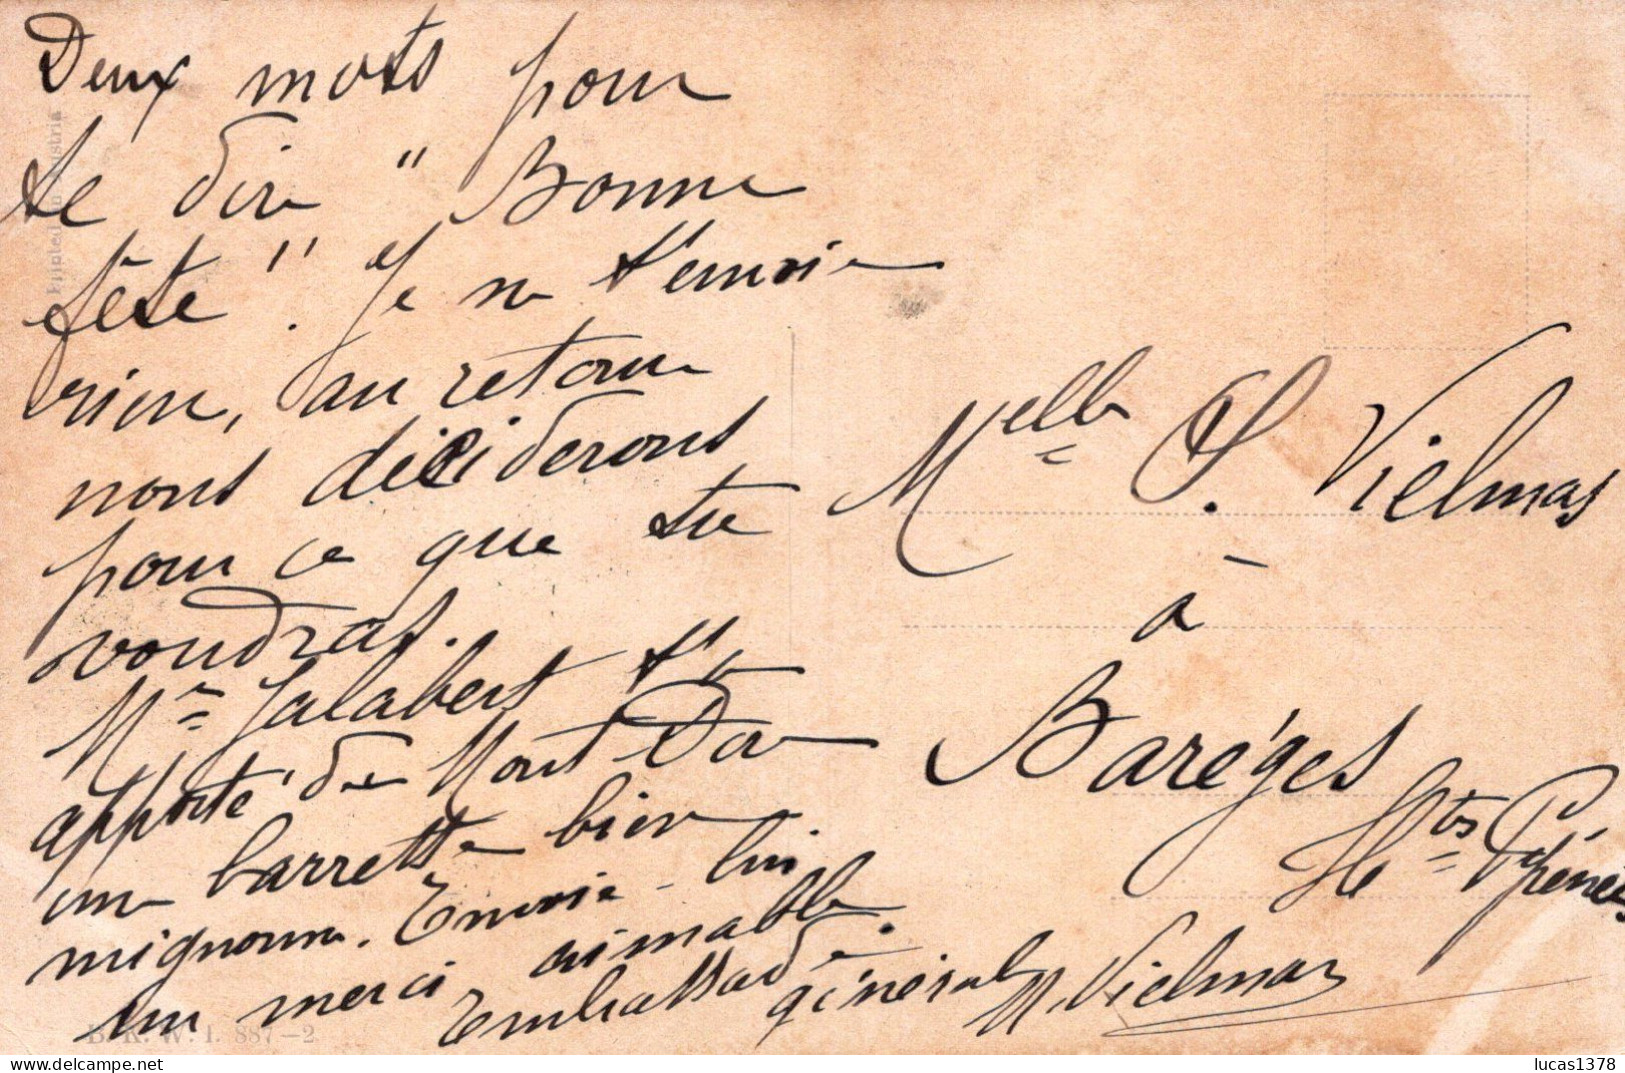 Deux mots pour
te dire " Bonne
fête ". Je ne t'envoie
rien, au retour
nous déciderons
pour ce que tu
voudras.
Mr Jalabert t'a
apporté de Mont Dore
une barrette bien
mignonne. Envoie-lui
un merci aimable.
Embrassade
générale
M. Vielmas
Melle S. Vielmas
à
Barèges
Htes Pyrénées
Printed in Austria
B. K. W. I. 887-2
lucas1378